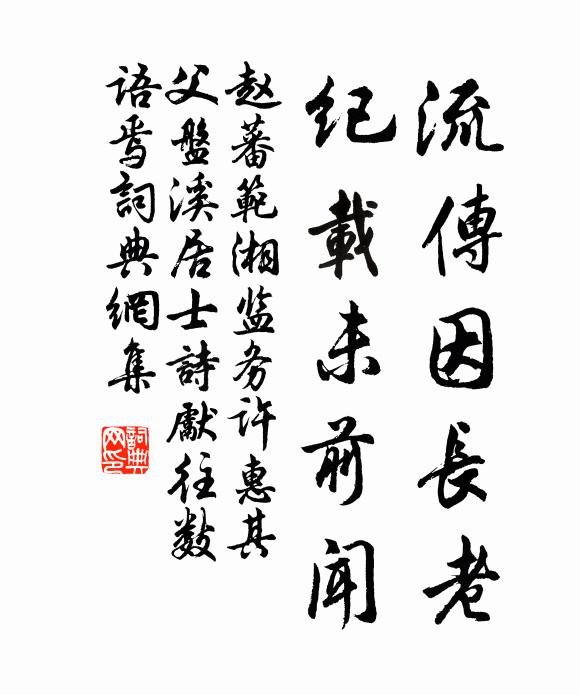 流傳因長老
紀載未前聞
赵蕃範湘监务许惠其
父盤溪居士詩獻往数
语焉詞典網集
詞典网印